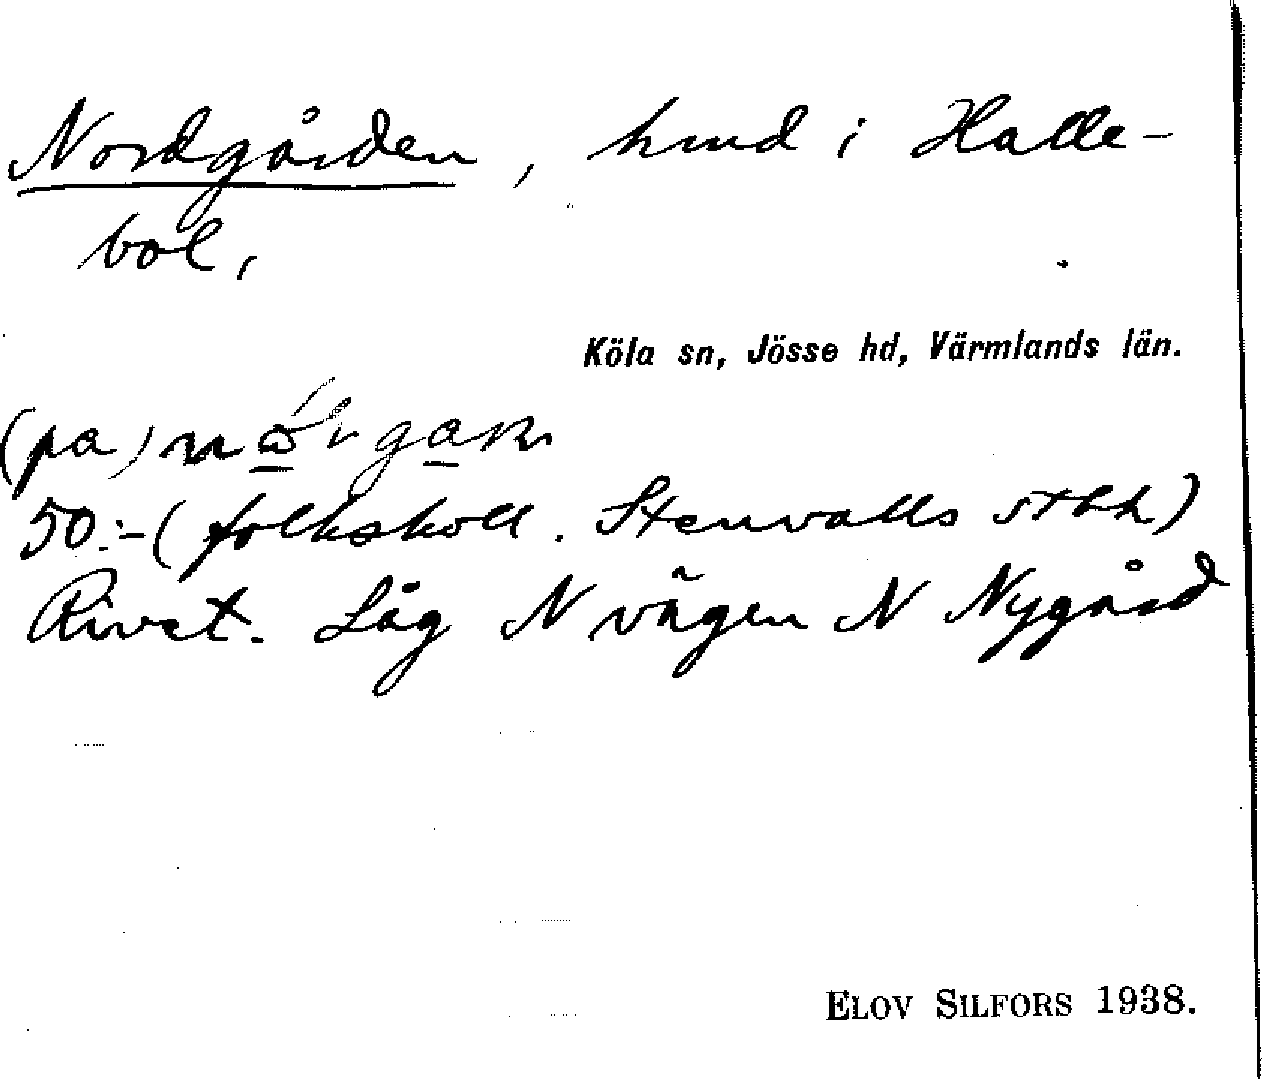 Nordgården, hmd i Halle-
bol,
Köla sn, Jösse hd, Värmlands län.
(pa)
50:-( folkskoll. Stenvalls stbh)
Rivet. Låg N vägen N Nygård
ELOV SILFORS 1938.